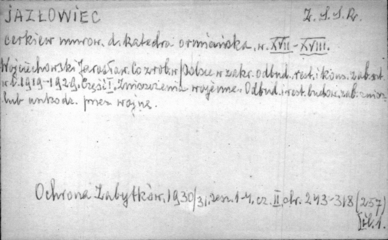 JAZŁOWIEC Z.S.S.R.
cerkiew murow. d. katedra ormiańska, w. XVII - XVIII.
Wojciechowski Jarosław. Co zrob. w Polsce w zakr. odbud. rest. i kons. zab. od
w l. 1919-1929. Część I. Zniszczenia wojenne. Odbud. i rest. budow. zab. znisz.
lub uszkodz. przez wojnę.
Ochrona Zabytków, 1930/31, zesz. 1-4, cz. II, str. 243-318 (257)